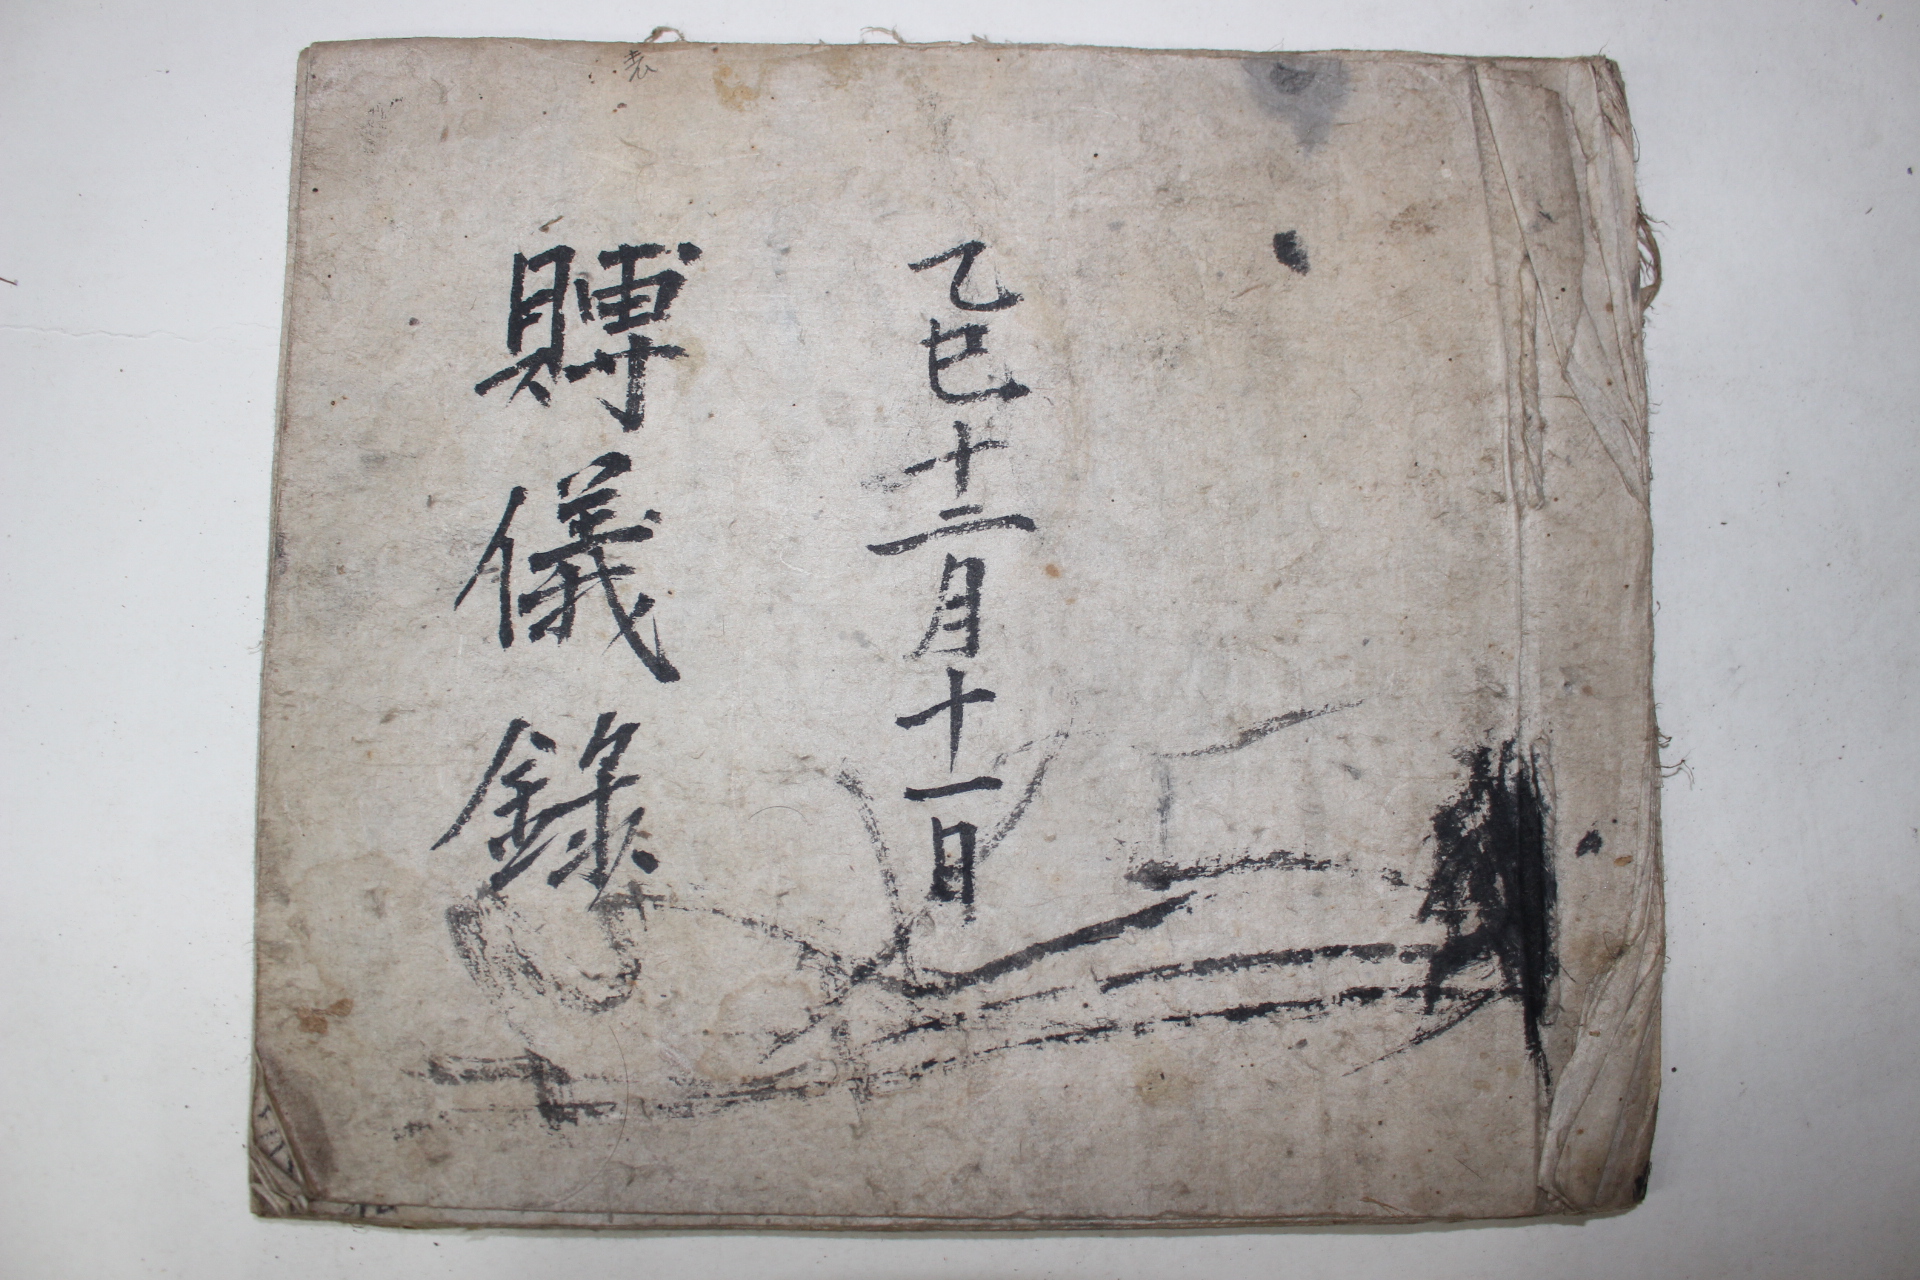 乙巳十二月十一日
賻儀錄